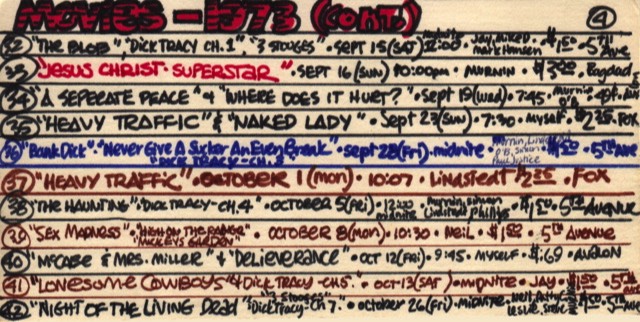 MOVIES - 1973 (CONT.) 4
32 "THE BLOB", DICK TRACY CH. 1", "3 STOOGES" • SEPT 15 (SAT) midnite 12:00 • Jay, Mark Hansen • $1.50 • 5TH Ave
33 "JESUS CHRIST SUPERSTAR" • SEPT 16 (SUN) 10:00pm • MURNIN • Bagdad
34 "A SEPERATE PEACE" & "WHERE DOES IT HURT?" • Sept 19 (wed) • 7:45 • Murnin
35 "HEAVY TRAFFIC" & "NAKED LADY" • Sept 23 (sun) • 7:30 • Myself • FOX
36 "Bank Dick" • "Never Give A Sucker An Even Break" • "DICK TRACY - CH. 3" • sept 28 (Fri) • midnite • $1.50 • 5TH AVE
37 "HEAVY TRAFFIC" • OCTOBER 1 (mon) • 10:07 • Lindstedt • FOX
38 "THE HAUNTING", "DICK TRACY - CH. 4" • OCTOBER 5 (fri) • 12:00 midnite • Murnin, simson Lindstedt Phillips • $1.50 • 5TH AVENUE
39 "SEX MADNESS", "HIGH ON THE RANGE" "MICKEYS GARDEN" • OCTOBER 8 (mon) • 10:30 • Neil • $1.52 • 5TH Avenue
40 "MCCABE & MRS. MILLER" & "DELIEVERANCE" • OCT 12 (fri) • 9:45 • MYSELF • $.69 • AVALON
41 "LONESOME COWBOYS" & DICK TRACY - CH 5" • OCT • 13 (SAT) • MIDNITE • JAY • $1.50 • 5TH AVE
42 "NIGHT OF THE LIVING Dead" "3 STOOGES" "Dick Tracy - Ch 7." • october 26 (Fri) • midnite • Neil, Leslie, Steve • $1.50 • 5TH Ave